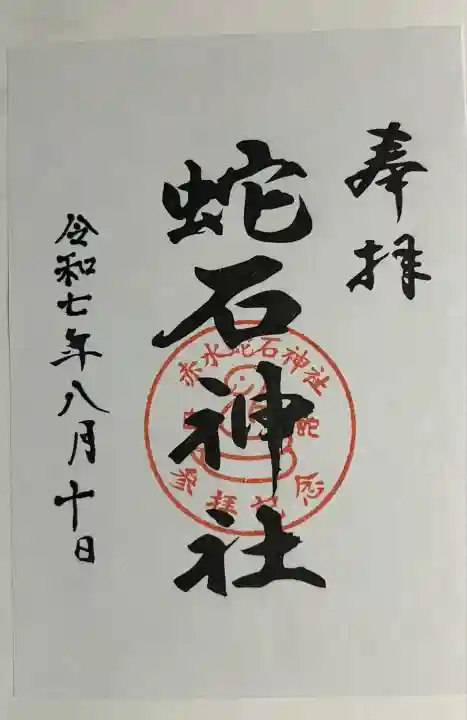 奉拝
蛇石神社
赤水蛇石神社
蛇
参拝記念
令和七年八月十日